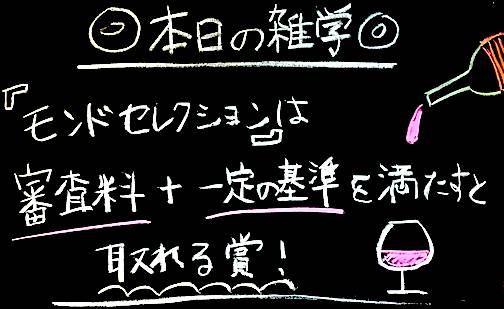 ◎本日の雑学◎
『モンドセレクション』は
審査料+一定の基準を満たすと
取れる賞!